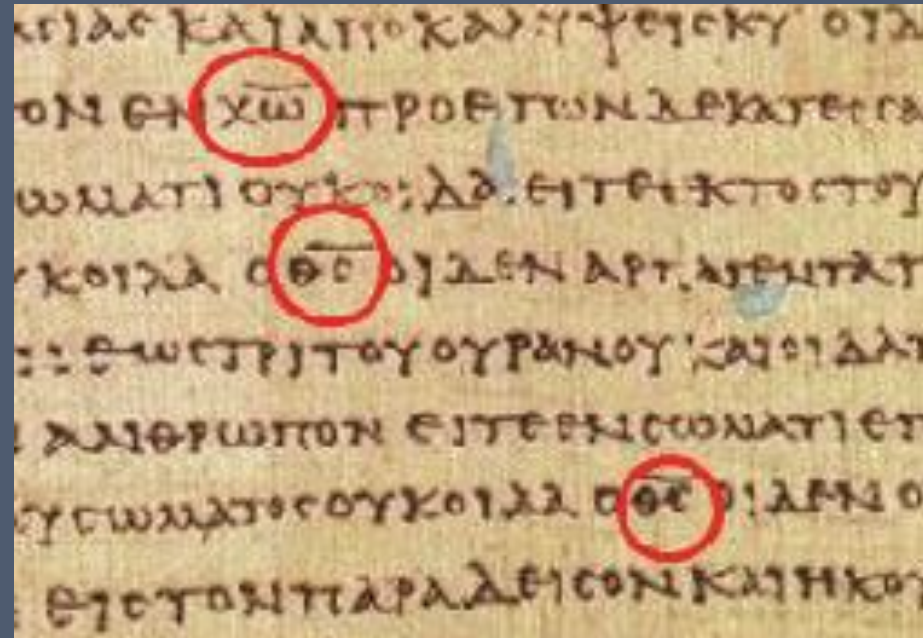 ΚΑΙΑΠΟΚΑΛΥΨΕΙΣΚΥ ΟΙΔ
ΤΟΝ ΕΝ ΧΩ ΠΡΟΕΤΩΝΔΕΚΑΤΕΣΣΑ
ΩΜΑΤΙ ΟΥΚΟΙΔΑ ΕΙΤΕΕΚΤΟΣΤΟΥ
ΥΚΟΙΔΑ Ο ΘΣ ΟΙΔΕΝ ΑΡΠΑΓΕΝΤΑΤ
ΕΩΣΤΡΙΤΟΥΟΥΡΑΝΟΥ ΚΑΙΟΙΔΑΤ
ΑΝΘΡΩΠΟΝ ΕΙΤΕΕΝΣΩΜΑΤΙΕΙ
ΥΣΩΜΑΤΟΣΟΥΚΟΙΔΑ Ο ΘΣ ΟΙΔΕΝΟ
ΕΙΣΤΟΝΠΑΡΑΔΕΙΣΟΝΚΑΙΗΚΟΥ